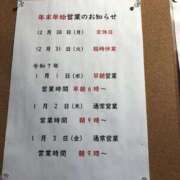 年末年始営業のお知らせ
12月30日(月) 定休日
12月31日(火) 臨時休業
令和7年
1月1日(水) 早朝営業
営業時間 早朝6時〜
1月2日(木) 通常営業
営業時間 朝9時〜
1月3日(金) 通常営業
営業時間 朝9時〜